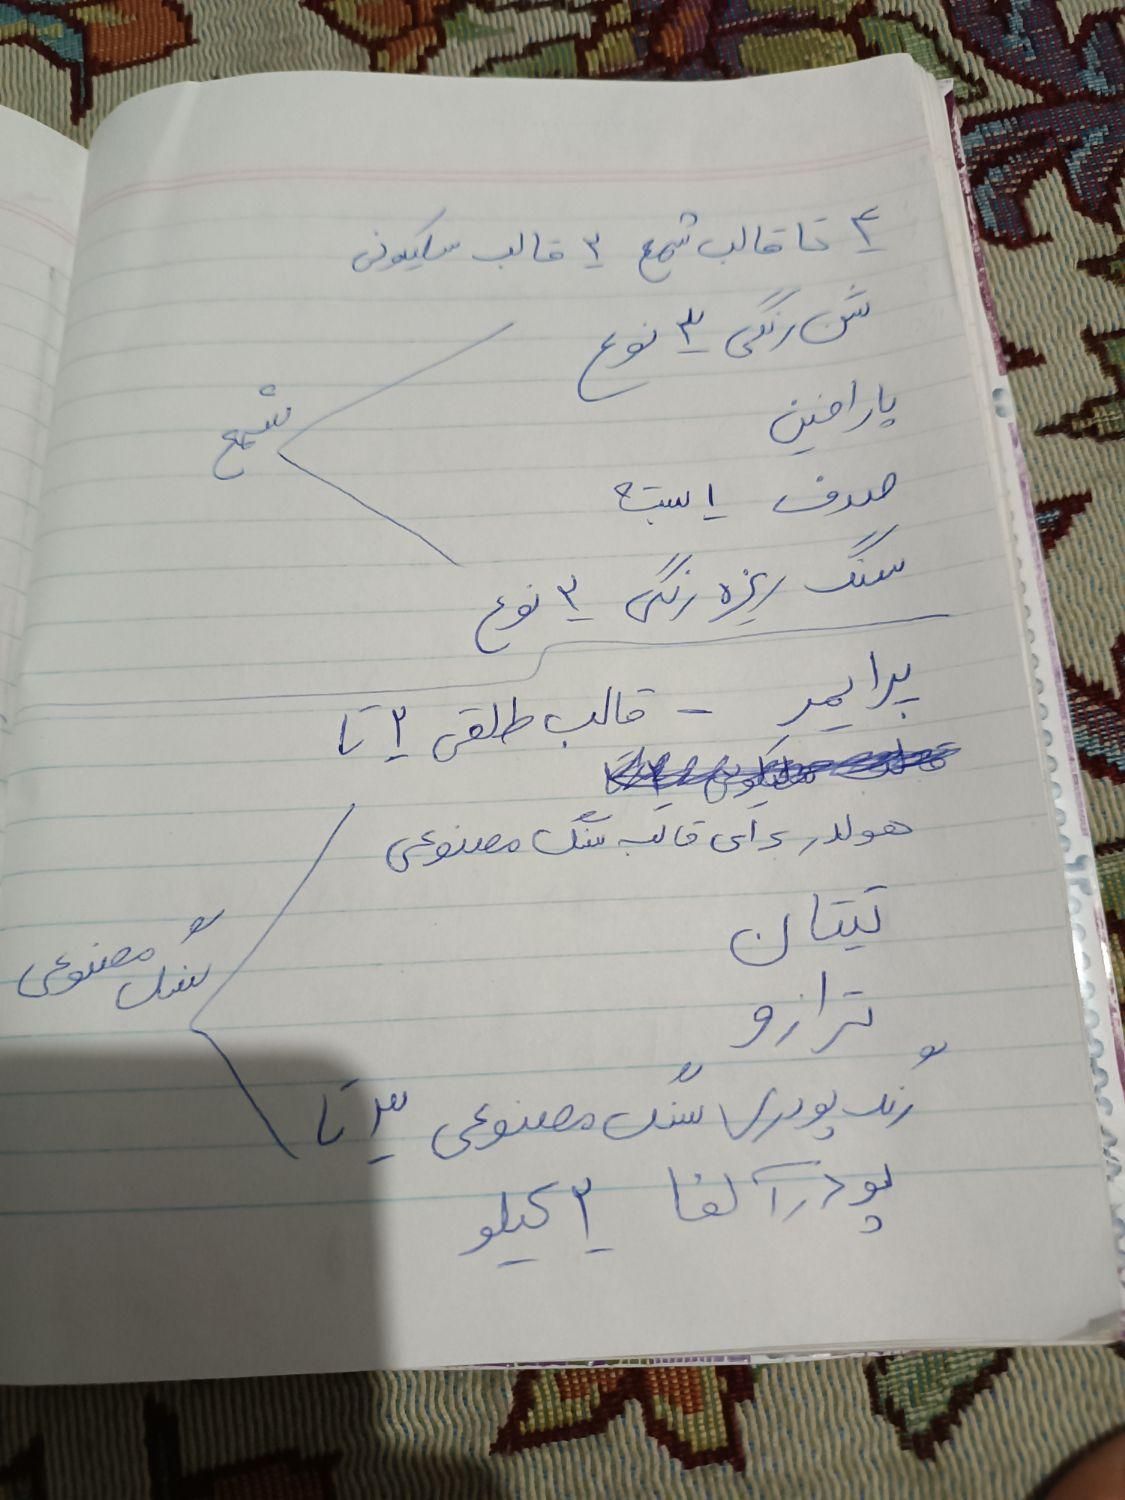 ۴ تا قالب شمع ۲ قالب سلیکونی
شن رنگی ۳ نوع
پارافین
شمع
صدف ۱ بسته
سنگ ریزه رنگی ۲ نوع
پرایمر - قالب طلقی ۲ تا
هولدر برای قالب سنگ مصنوعی
تیتان
سنگ مصنوعی
ترازو
رنگ پودری سنگ مصنوعی ۳ تا
پودر آلفا ۲ کیلو